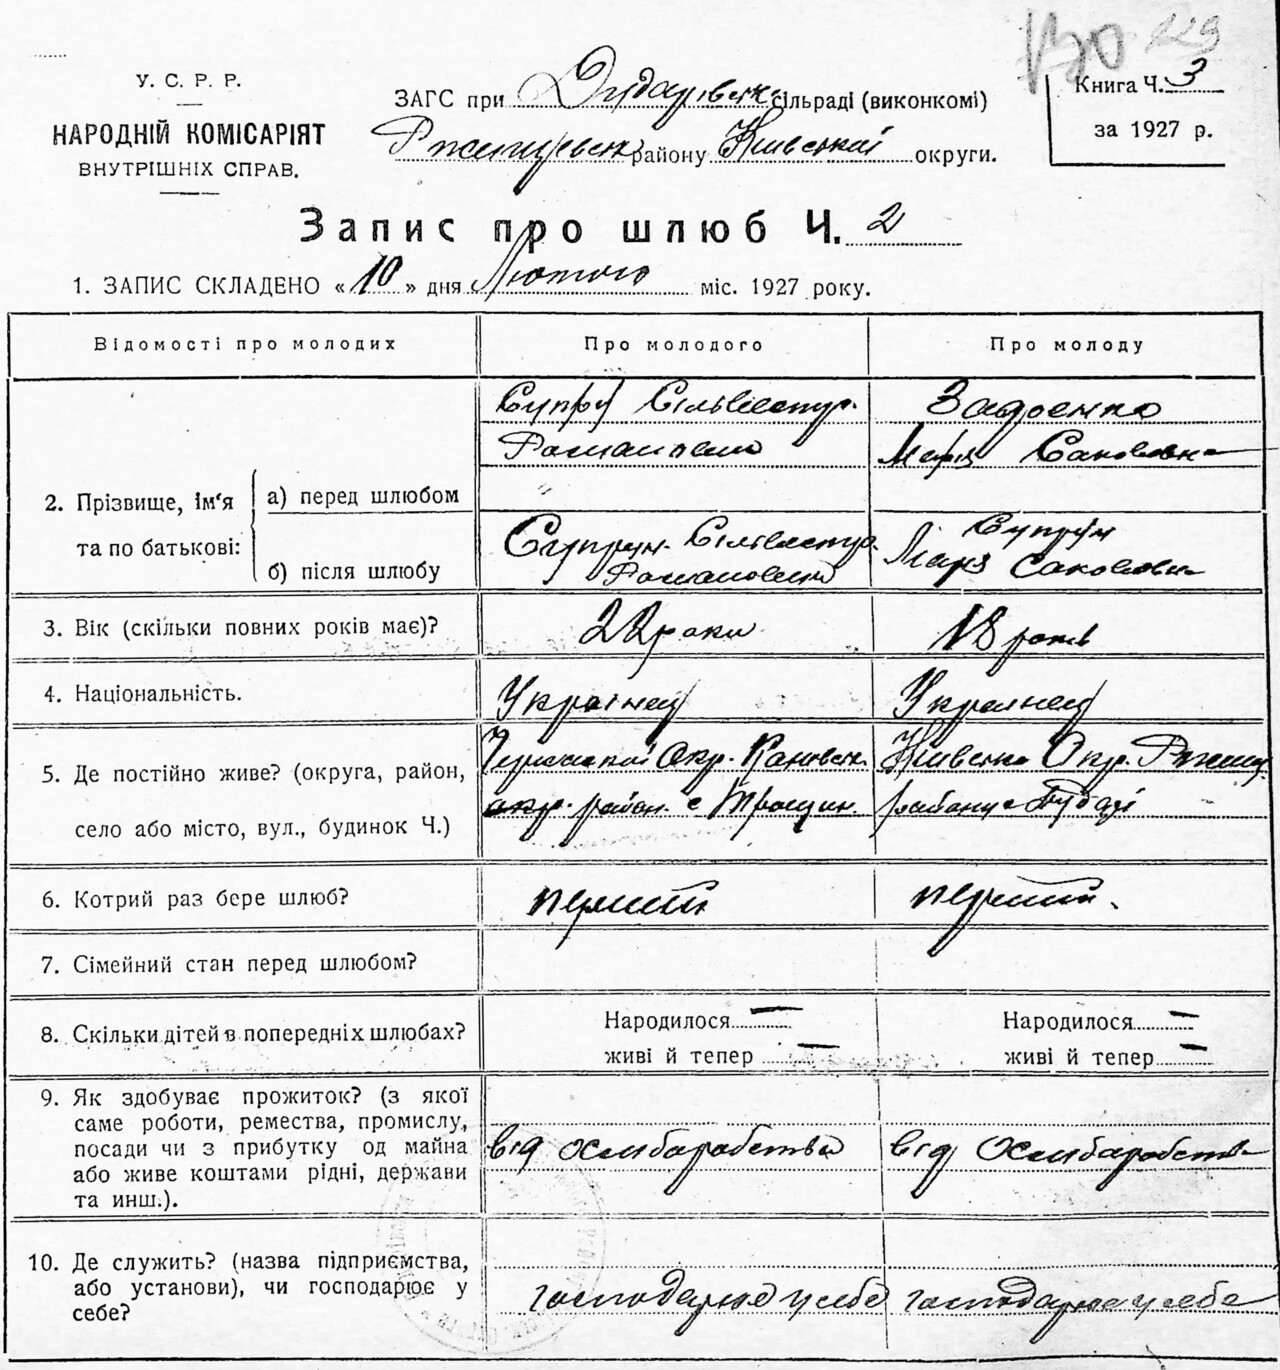 У. С. Р. Р.
НАРОДНІЙ КОМІСАРІЯТ
ВНУТРІШНІХ СПРАВ.
ЗАГС при сільраді (виконкомі)
району Київської округи.
Книга Ч. 3
за 1927 р.
Запис про шлюб Ч. 2
1. ЗАПИС СКЛАДЕНО « 10 » дня Лютого міс. 1927 року.
Відомості про молодих Про молодого Про молоду
2. Прізвище, ім‘я та по батькові:
а) перед шлюбом
Романович
Марія
б) після шлюбу
Супрун
Романович
Супрун
Марія
3. Вік (скільки повних років має)? 22 роки 18 років
4. Національність. Українец Українец
5. Де постійно живе? (округа, район,
село або місто, вул., будинок Ч.)
Окр.
район. с
Київсько Окр.
6. Котрий раз бере шлюб? перший перший.
7. Сімейний стан перед шлюбом?
8. Скільки дітей в попередніх шлюбах?
Народилося — Народилося —
живі й тепер — живі й тепер —
9. Як здобуває прожиток? (з якої
саме роботи, ремества, промислу,
посади чи з прибутку од майна
або живе коштами рідні, держави
та инш.).
від від
10. Де служить? (назва підприємства,
або установи), чи господарює у
себе?
господарює у себе господарює у себе